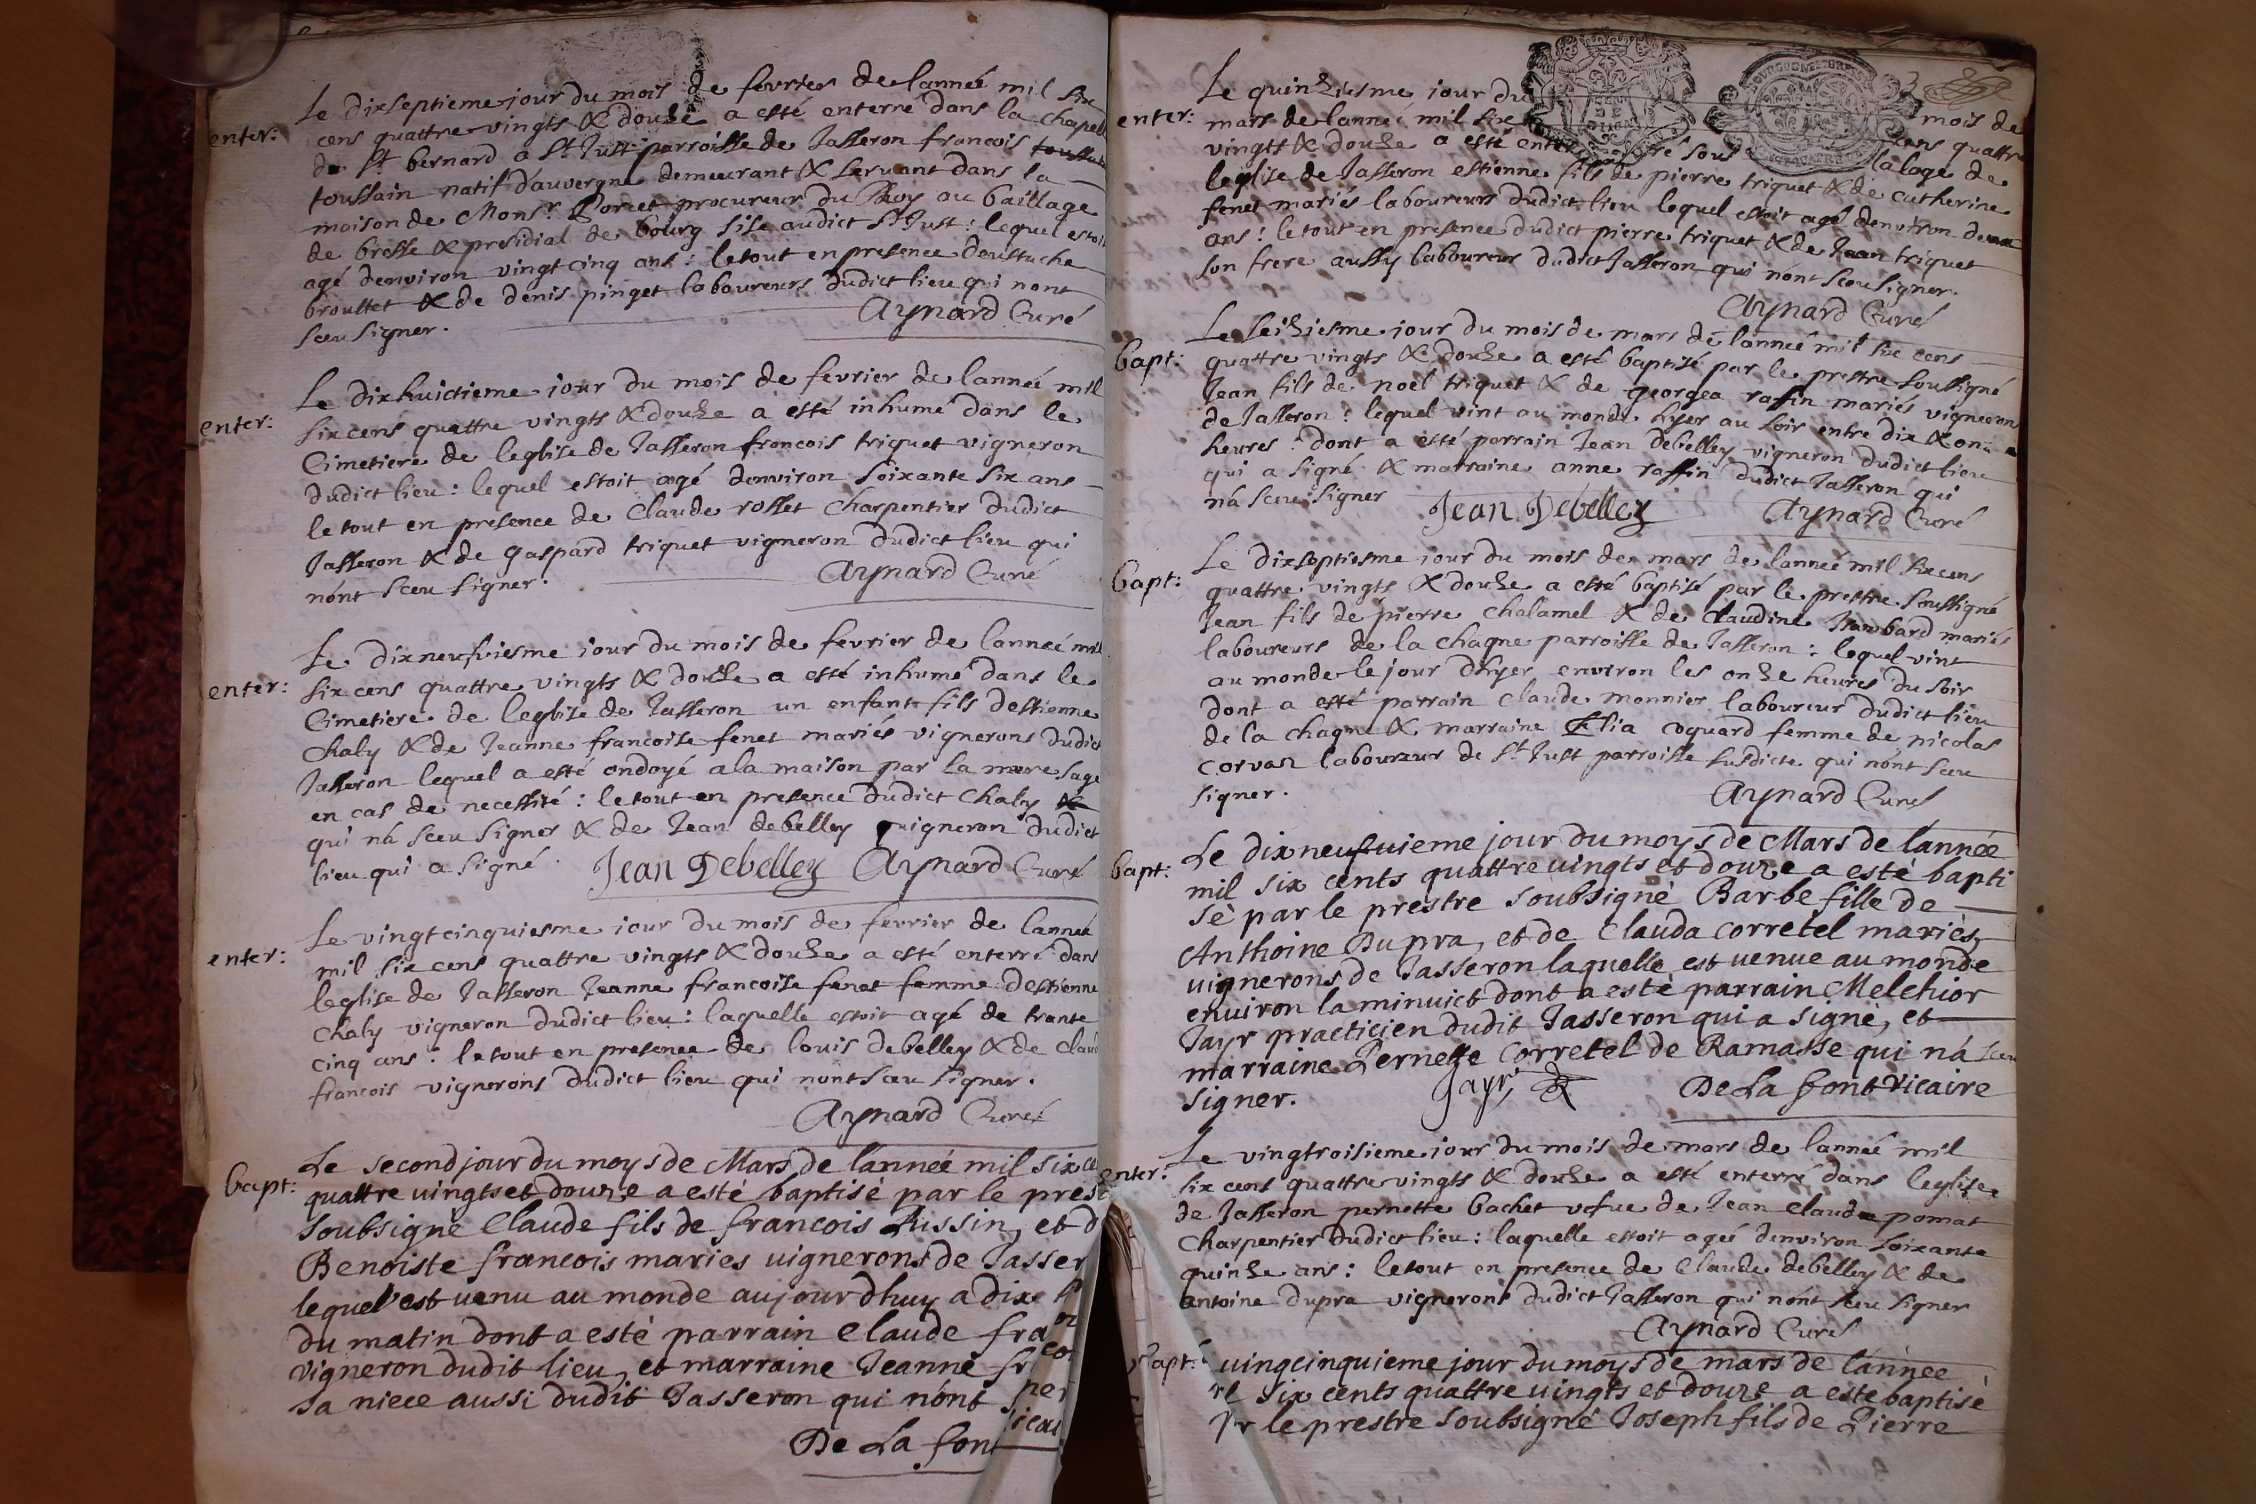 enter:
Le dixseptieme jour du mois de fevrier de lanneé mil six
cens quattre vingts & douze a esté enterré dans la chapell
de St bernard a St Just parroisse de Jasseron francois
toussain natif d'auvergne demeurant & servant dans la
maison de Monsr. procureur du Roy au baillage
de bresse & presidial de bourg sise audict St Just: lequel estoit
agé denviron vingt cinq ans: le tout en presence deustache
brouttet & de denis pinget laboureurs dudict lieu qui nont
sceu signer.
Aynard Curé
enter:
Le dixhuictieme jour du mois de fevrier de lanneé mil
six cens quattre vingts & douze a esté inhumé dans le
Cimetiere de leglise de Jasseron francois triquet vigneron
dudict lieu: lequel estoit agé denviron soixante six ans
le tout en presence de Claude rosset charpentier dudict
Jasseron & de gaspard triquet vigneron dudict lieu qui
nónt sceu signer.
Aynard Curé
enter:
Le dixneufviesme jour du mois de fevrier de lanneé mil
six cens quattre vingts & douze a esté inhumé dans le
Cimetiere de leglise de Jasseron un enfant fils destienne
Chaly & de Jeanne francoise fenet mariés vignerons dudict
Jasseron lequel a esté ondoyé a la maison par la mere sage
en cas de necessité: le tout en presence dudict Chaly
qui ná sceu signer & de Jean debelley vigneron dudict
lieu qui a signé.
Jean Debelley Aynard Curé
enter:
Le vingtcinquiesme jour du mois de fevrier de lanneé
mil six cens quattre vingts & douze a esté enterré dans
leglise de Jasseron Jeanne francoise fenet femme destienne
Chaly vigneron dudict lieu: laquelle estoit agé de trante
cinq ans: le tout en presence de louis debelley & de clau
francois vignerons dudict lieu qui nont sceu signer.
Aynard Curé
bapt:
Le second jour du moys de Mars de lanneé mil six ce
quattre vingts et douze a esté baptisé par le prest
soubsigné Claude fils de francois Rissin, et d
Benoiste francois maries vignerons de Jasser
lequel est venu au monde aujourdhuy a dix h
du matin dont a esté parrain Claude fra
vigneron dudit lieu, et marraine Jeanne fr
sa niece aussi dudit Jasseron qui nónt
De La font
enter:
Le quinziesme jour du mois de
mars de lanneé mil six cens quattre
vingts & douze a esté enterré sous la loge de
leglise de Jasseron estienne fils de pierre triquet & de catherine
fenet mariés laboureurs dudict lieu lequel estoit agé denviron deux
ans: le tout en presence dudict pierre triquet & de Jean triquet
son frere aussy laboureur dudict Jasseron qui nónt sceu signer.
Aynard Curé
bapt:
Le seiziesme jour du mois de mars de lanneé mil six cens
quattre vingts & douze a esté baptisé par le prestre soussigné
Jean fils de noël triquet & de georgea raffin mariés vignerons
de Jasseron: lequel vint au monde hyer au soir entre dix & onze
heures: dont a esté parrain Jean debelley vigneron dudict lieu
qui a signé & marraine anne raffin dudict Jasseron qui
ná sceu signer
Jean Debelley Aynard Curé
bapt:
Le dixseptiesme jour du mois de mars de lanneé mil six cens
quattre vingts & douze a esté baptisé par le prestre soussigné
Jean fils de pierre chalamel & de Claudine mariés
laboureurs de la chagne parroisse de Jasseron: lequel vint
au monde le jour dhyer environ les onze heures du soir
dont a esté parrain Claude monnier laboureur dudict lieu
de la chagne & marraine Elia coquard femme de nicolas
corvan laboureur de St Just parroisse susdicte qui nónt sceu
signer.
Aynard Curé
bapt:
Le dixneufuieme jour du moys de Mars de lánnée
mil six cents quattre vingts et douze a esté bapti
sé par le prestre soubsigné Barbe fille de
Anthoine Dupra, et de Clauda corretel mariés
vignerons de Jasseron laquelle est venue au monde
environ la minuict dont a esté parrain Melchior
Jayr practicien dudit Jasseron qui a signé, et
marraine Pernette Corretel de Ramasse qui ná sceu
signer.
Jayr De La font Vicaire
enter:
Le vingtroisieme jour du mois de mars de lanneé mil
six cens quattre vingts & douze a esté enterré dans leglise
de Jasseron pernette bachet vefue de Jean claude pomat
charpentier dudict lieu: laquelle estoit ageé denviron soixante
quinze ans: le tout en presence de Claude debelley & de
antoine dupra vignerons dudict Jasseron qui nónt sceu signer
Aynard Curé
bapt:
vingcinquieme jour du moys de mars de lánneé
il six cents quattre vingts et douze a esté baptisé
r le prestre soubsigné Joseph fils de Pierre